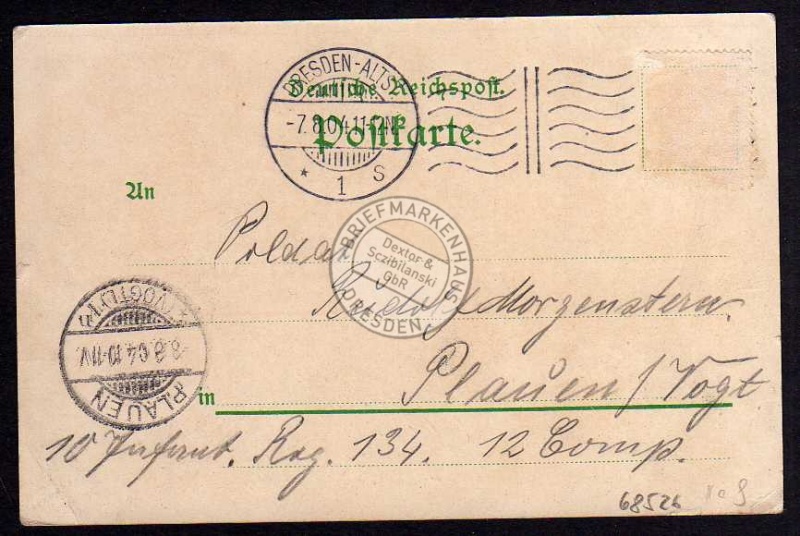 DRESDEN-ALTST.
Deutsche Reichspost.
-7.8.04.11-12N.
Postkarte.
* 1 S
An
Soldat
BRIEFMARKENHAUS
Dextor &
Sczibilanski
GbR
DRESDEN
Rudolf Morgenstern
(VOGTL)
-8.8.04.10-11V.
PLAUEN
in Plauen / Vogt
10 Infant. Reg. 134. 12 Comp.
68526